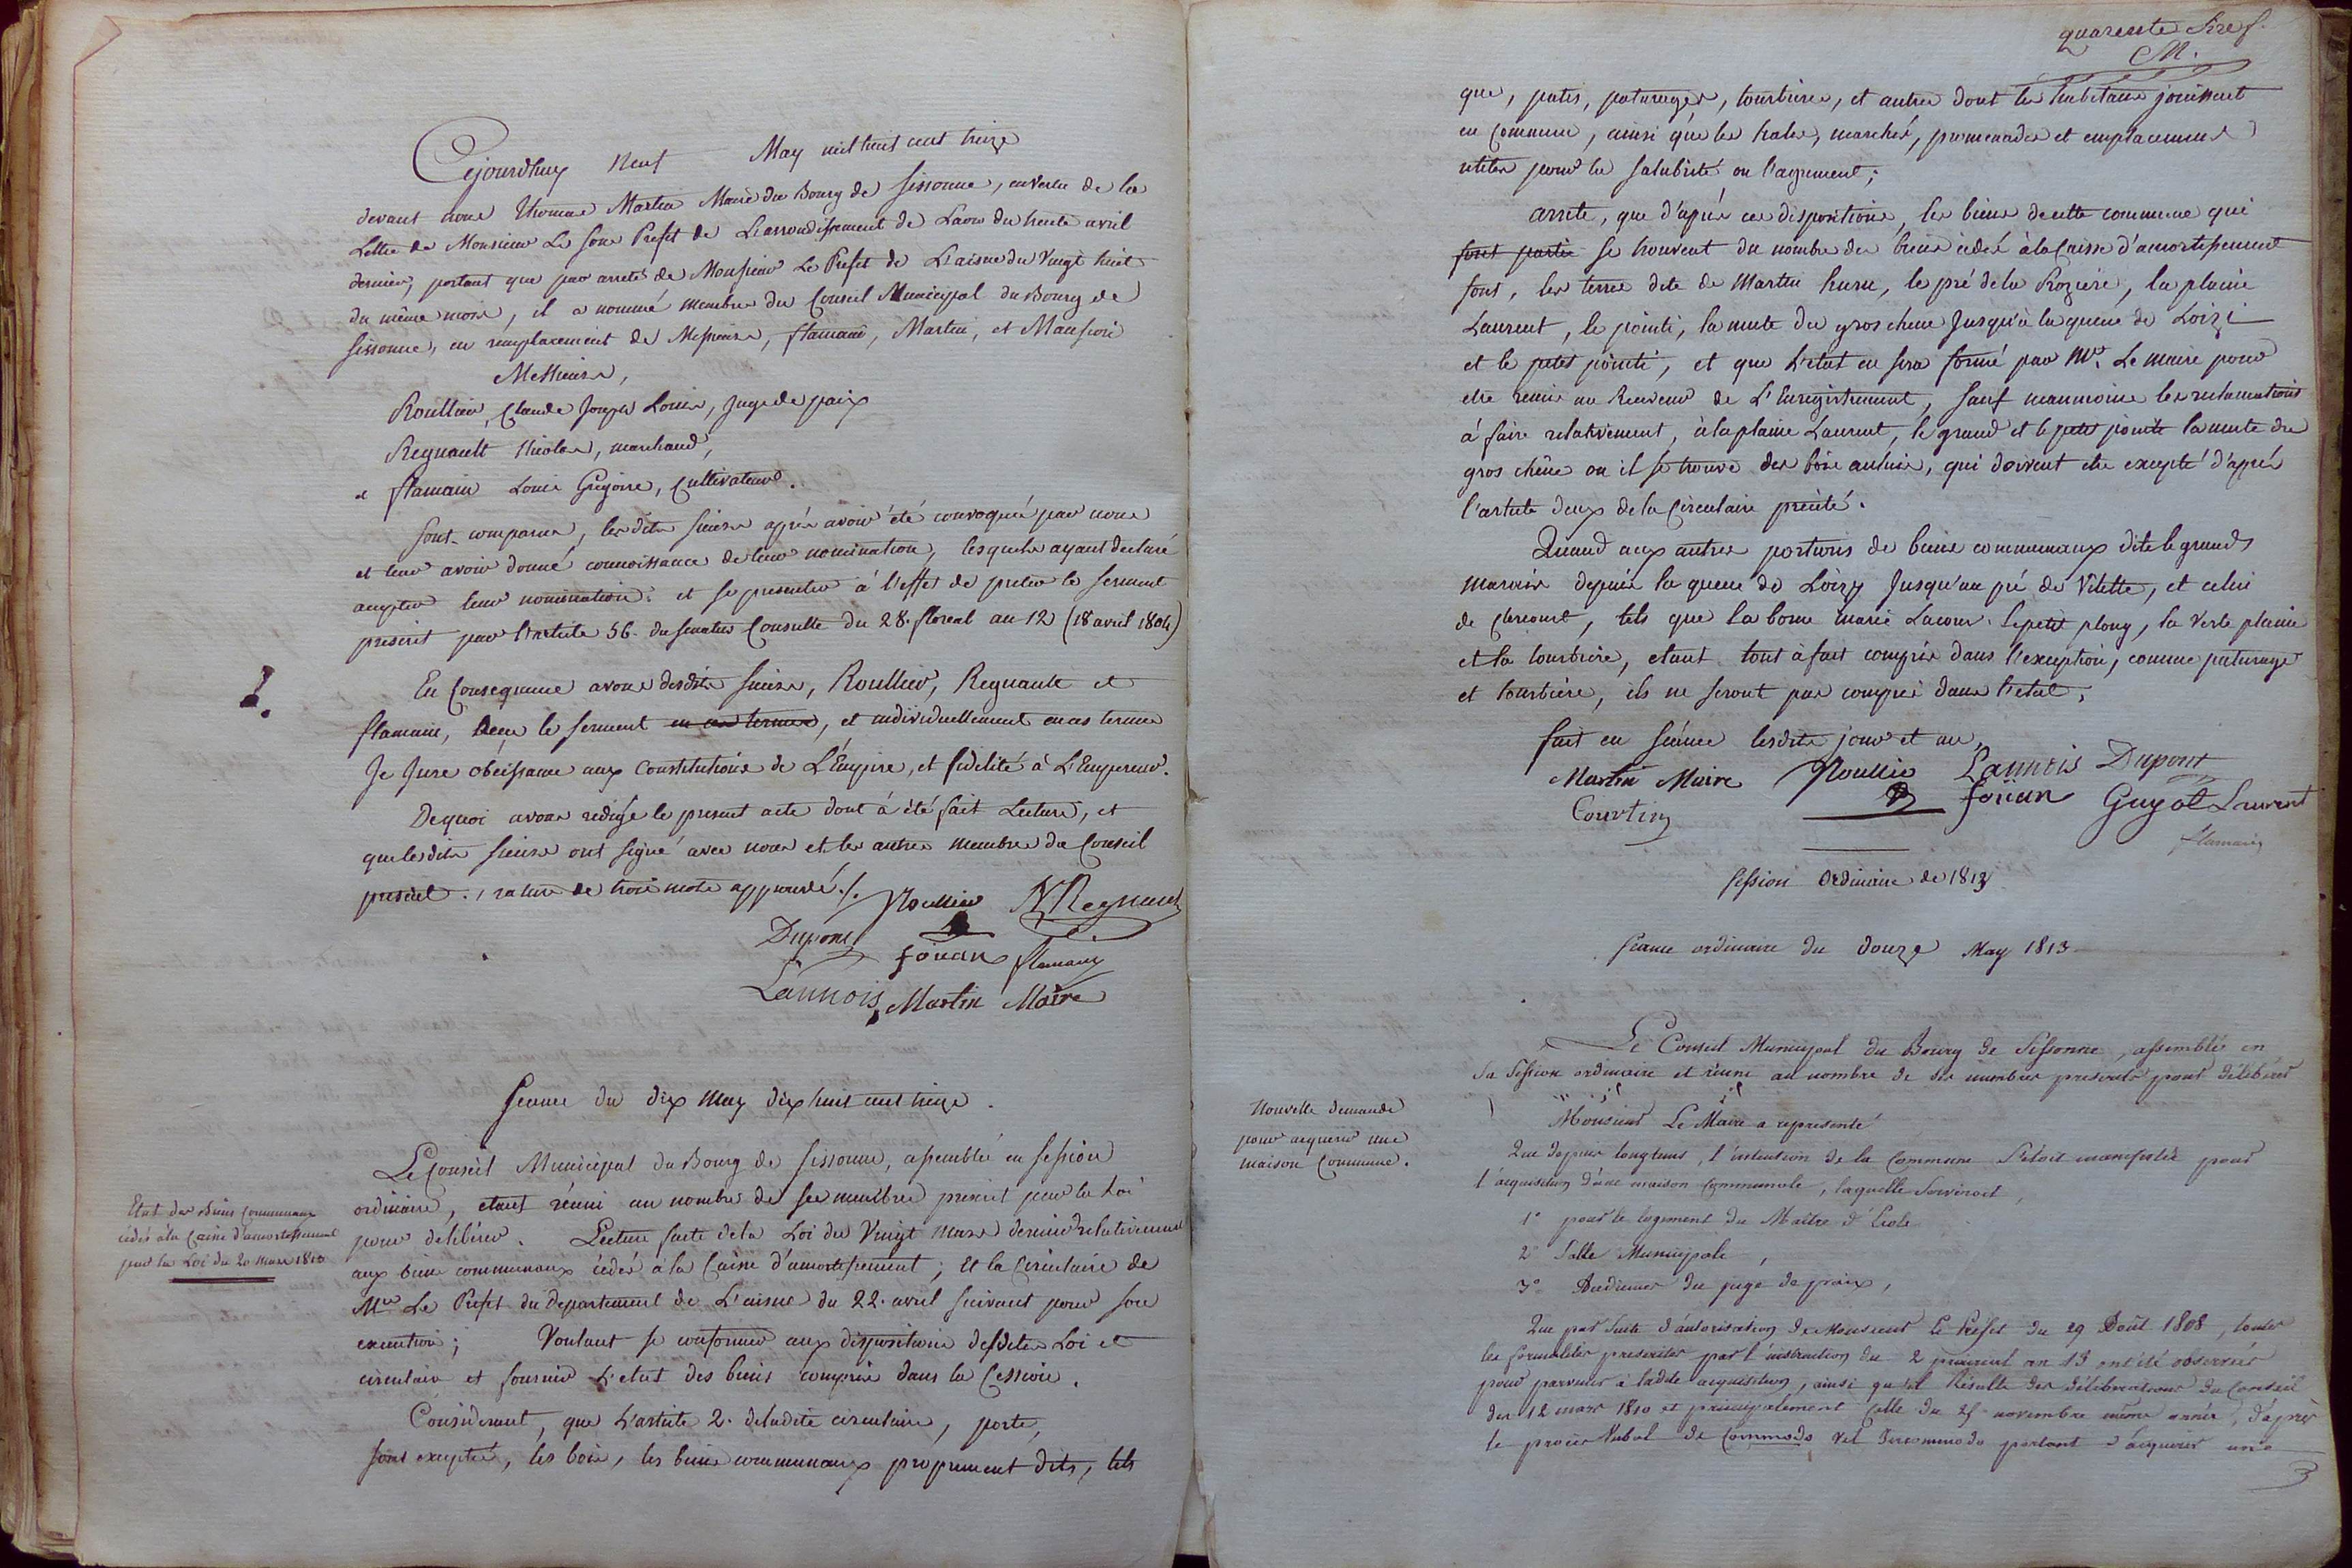 Cejourdhuy Neuf May mil huit cent treize
devant nous Thomas Martin Maire du Bourg de Sissonne, en vertu de la
Lettre de Monsieur Le sous Prefet de L'arrondissement de Laon du trente avril
dernier, portant que par arreté de Monsieur Le Prefet de L'aisne du Vingt huit
du même mois, il a nommé membres du Conseil Municipal du Bourg de
Sissonne, en remplacement de Messieurs, flamain, Martin, et
Messieurs,
Roullier, Claude Joseph Louis, Juge de paix
Regnault Nicolas, marchand,
et flamain Louis Gregoire, Cultivateur.
Sont comparus, lesdits sieurs après avoir été convoqués par nous
et leur avoir donné connoissance de leur nomination, lesquels ayant declaré
accepter leur nomination. et se presenter à l'effet de preter le serment
prescrit par l'article 56. du senatus Consulte du 28. floreal an 12 (18 avril 1804)
En Consequence avons desdits sieurs, Roullier, Regnault et
flamain, Reçu le serment en ces termes, et individuellement en ces termes
Je Jure obéissance aux Constitutions de L'Empire, et fidelité à L'Empereur.
De quoi avons redigé le present acte dont à été fait Lecture, et
que lesdits sieurs ont signé avec nous et les autres membres du Conseil
present. rature de trois mots approuvé./.
Roullier NRegnault
Dupont foüan flamain
Lannois Martin Maire
Seance du dix may dix huit cent treize.
Etat des Biens Communaux
cédés à la Caisse d'amortissement
par la Loi du 20 Mars 1813
Le Conseil Municipal du Bourg de Sissonne, assemblé en session
ordinaire, etant réuni au nombre de ses membres prescrit par la Loi
pour deliberer. Lecture faite de la Loi du Vingt Mars dernier relativement
aux biens communaux cédés à la Caisse d'amortissement; Et la Circulaire de
Mr Le Prefet du Departement de L'aisne du 22. avril suivant pour son
execution; Voulant se conformer aux dispositions desdites Loi et
circulaire et fournir L'etat des biens compris dans la Cession.
Considerant, que L'article 2. de ladite circulaire, porte,
sont exceptés, les bois, les biens communaux proprement dits, tels
quarente Sixe f.
M.
que, patis, paturages, tourbieres, et autres dont les habitans jouissent
en Commun, ainsi que les hales, marchés, promenades et emplacemens
utiles pour la salubrité ou l'agrement;
arrete, que d'après ces dispositions, les biens de cette commune qui
font partie se trouvent du nombre des biens cédés à la Caisse d'amortissement
sont, les terres dite de Martin huru, le pré de la Roziere, la plaine
Laurent, le pointi, la mute du gros chene Jusqu'à la queue de Loizi
et le petit pointi, et que L'etat en sera formé par Mr. Le maire pour
etre remis au Receveur de L'Enregistrement, sauf neanmoins les reclamations
à faire relativement, à la plaine Laurent, le grand et le petit pointi la mute du
gros chêne ou il se trouve des bois aulnis, qui doivent etre excepté d'après
l'article deux de la Circulaire precité.
Quand aux autres portions de biens communaux dite le grand
marais depuis la queue de Loizy Jusqu'au pré de Vilette, et celui
de Clercourt, tels que la borne marie Lacour. le petit ploug, la Verte plaine
et la tourbiere, etant tout à fait compris dans l'exception, comme paturage
et tourbiere, ils ne seront pas compris dans l'etat;
fait en seance lesdits jour et an,
Martin Maire Roullier Lannois Dupont
Courtin foüan Guyot Laurent
flamain
Session Ordinaire de 1813
Seance ordinaire du douze May 1813
Le Conseil Municipal du Bourg de Sissonne, assemblé en
sa Session ordinaire et réunie au nombre de ses membres presents pour délibérer
Nouvelle demande
pour acquerir une
maison Commune.
Monsieur Le Maire a representé
Que depuis longtems, l'intention de la Commune s'étoit manifestée pour
l'acquisition d'une maison Communale, laquelle serviroit,
1° pour le logement du Maître d'Ecole
2° Salle Municipale,
3° Audiences du juge de paix,
Que par suite d'autorisation de Monsieur le Prefet du 29 Août 1808, toutes
les formalités prescrites par l'instruction du 2 prairial an 13 ont été observées
pour parvenir à ladite acquisition, ainsi qu'il Résulte des délibérations du Conseil
des 12 mars 1810 et principalement Celle du 25 novembre même année, d'après
le procès Verbal de Commodo vel Incommodo portant d'acquerir une